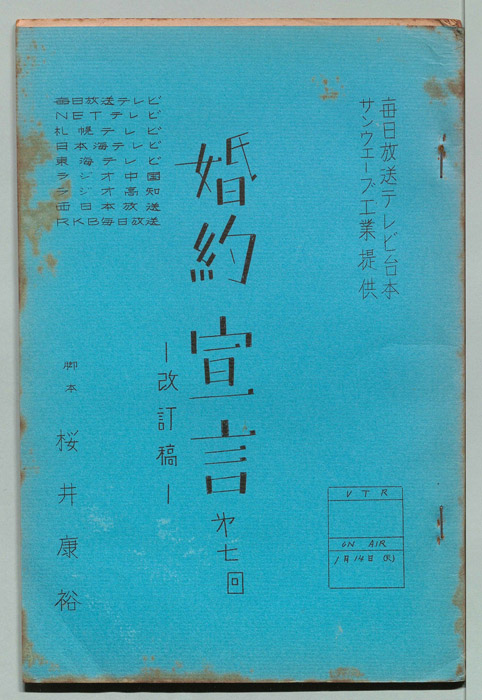 毎日放送テレビ台本
サンウエーブ工業提供
婚約宣言 第七回
―改訂稿―
毎日放送テレビ
NETテレビ
札幌テレビ
日本海テレビ
東海テレビ
ラジオ中国
ラジオ高知
西日本放送
RKB毎日放送
脚本 桜井康裕
VTR
ON AIR
1月14日(火)